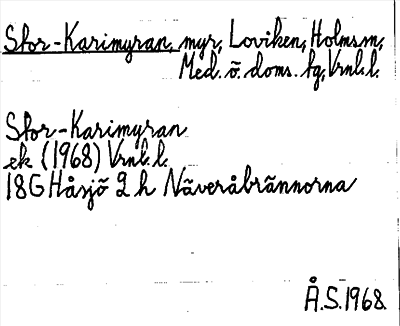 Stor-Karimyran, myr, Loviken, Holms m,
Med. ö. doms. tg, Vrnl. l.
Stor-Karimyran
ek (1968) Vrnl. l.
18G Håsjö 2 h Näveråbrännorna
Å.S. 1968.